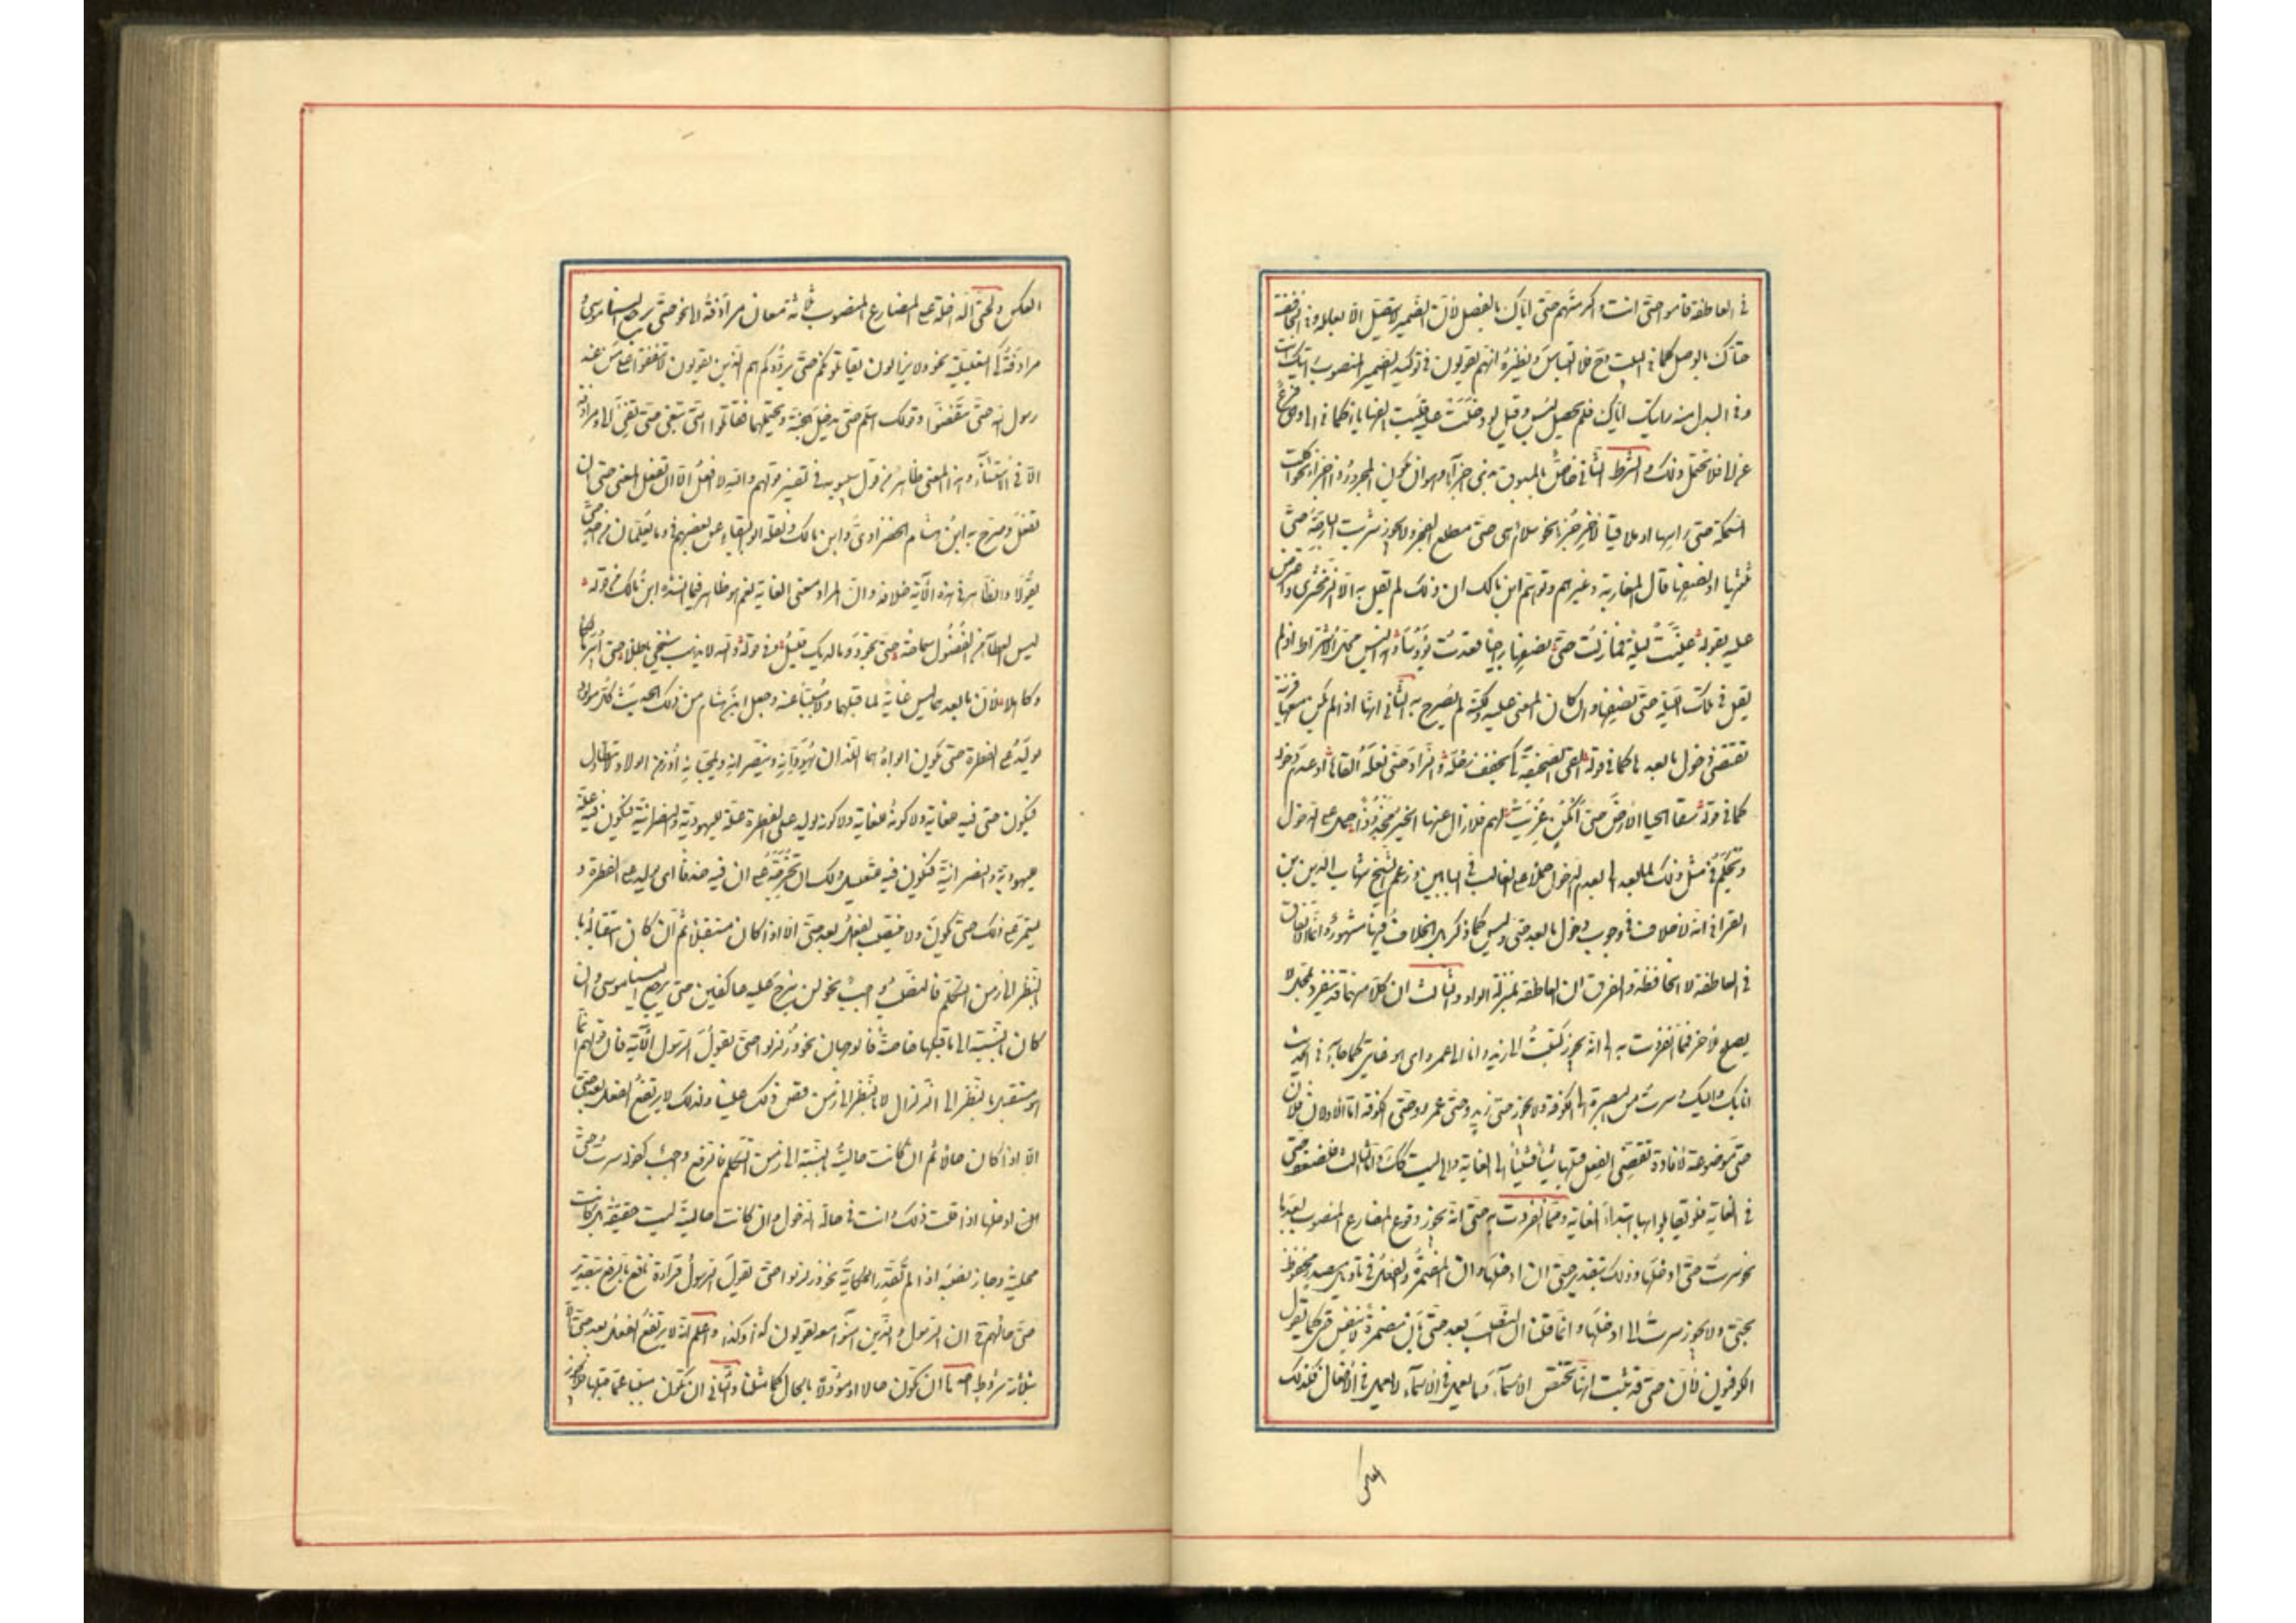 في العاطفة قاموا حتى انت واكرمتهم حتى اياك بالفصل لأن الضمير لا يتصل الا بعامله وفي الخافضة
حتاك بالوصل كما في البيت وح فلا التباس ونظيره انهم يقولون في توكيد الضمير المنصوب رايتك انت
وفي البدل منه رايتك اياك فلم يحصل لبس وقيل لو دخلت عليه قلبت الفها ياء كما في الى وهي فرع
عن الى فلا تحتمل ذلك والشرط الثاني خاص بالمسبوق بذي اجزاء وهو ان يكون المجرور اخرا نحو اكلت
السمكة حتى راسها او ملاقيا لاخر جزء نحو سلام هي حتى مطلع الفجر ولا يجوز سرت البارحة حتى
ثلثها او نصفها قال المغاربة وغيرهم وتوهم ابن مالك ان ذلك لم يقل به الا الزمخشري واعترض
عليه بقوله عينت ليلة فما زلت حتى نصفها راجيا فعدت يؤسا وليس محل الاشتراط اذ لم
يقل في تلك الليلة حتى نصفها وان كان المعنى عليه ولكنه لم يصرح به الثاني انها اذا لم يكن معها قرينة
تقتضي دخول ما بعدها كما في قوله القى الصحيفة كي يخفف رحله والزاد حتى نعله القاها او عدم دخوله
كما في قوله سقى الحيا الارض حتى امكن عزيت لهم فلا زال عنها الخير مجذوذا حمل على الدخول
ويحكم في مثل ذلك لما بعد الى بعدم الدخول حملا على الغالب في البابين وزعم الشيخ شهاب الدين بن
القرافي انه لا خلاف في وجوب دخول ما بعد حتى وليس كما ذكر بل الخلاف فيها مشهور وانما الاتفاق
في العاطفة لا الخافضة والفرق ان العاطفة بمنزلة الواو والثالث ان كلا منهما قد ينفرد بمحل لا
يصلح للاخر فمما انفردت به الى انه يجوز كتبت الى زيد وانا الى عمرو اي هو غايتي كما جاء في الحديث
انا بك واليك وسرت من البصرة الى الكوفة ولا يجوز حتى زيد وحتى عمرو وحتى الكوفة اما الاولان فلان
حتى موضوعة لافادة تقضي الفعل قبلها شيئا فشيئا الى الغاية والى ليست كذلك واما الثالث فلضعف حتى
في الغاية فلم يقابلوا بها ابتداء الغاية ومما انفردت به حتى انه يجوز وقوع المضارع المنصوب بعدها
نحو سرت حتى ادخلها وذلك بتقدير حتى ان ادخلها وان المضمرة والفعل في تاويل مصدر مخفوض
بحتى ولا يجوز سرت الى ادخلها وانما قلنا ان النصب بعد حتى بان مضمرة لا بنفس حتى كما يقول
الكوفيون لأن حتى قد ثبت انها تخفض الاسماء وما يعمل في الاسماء لا يعمل في الافعال وكذلك
العكس
العكس ولحتى الداخلة على المضارع المنصوب ثلاثة معان مرادفة الى نحو حتى يرجع الينا موسى و
مرادفة كي التعليلية نحو ولا يزالون يقاتلونكم حتى يردوكم هم الذين يقولون لا تنفقوا على من عند
رسول الله حتى ينفضوا وقولك اسلم حتى تدخل الجنة ويحتملهما فقاتلوا التي تبغي حتى تفيء الى ومرادفة
الا في الاستثناء وهذا المعنى ظاهر من قول سيبويه في تفسير قولهم والله لا افعل الا ان تفعل المعنى حتى ان
تفعل وصرح به ابن هشام الخضراوي وابن مالك ونقله ابو البقاء عن بعضهم في وما يعلمان من احد حتى
يقولا والظاهر في هذه الآية خلافه وان المراد معنى الغاية نعم هو ظاهر فيما انشده ابن مالك من قوله
ليس العطاء من الفضول سماحة حتى تجود وما لديك قليل وفي قوله والله لا يذهب شيخي باطلا حتى ابير مالكا
وكاهلا لأن ما بعدهما ليس غاية لما قبلهما ولا مسببا عنه وجعل ابن هشام من ذلك الحديث كل مولود
يولد على الفطرة حتى يكون ابواه هما اللذان يهودانه وينصرانه ويمجسانه اذ زمن الولادة لا يتطاول
فتكون حتى فيه للغاية ولا كونه يولد على الفطرة علة لليهودية والنصرانية فتكون فيه علة
لليهودية والنصرانية فتكون فيه للتعليل ولك ان تخرجه على ان فيه حذفا اي يولد على الفطرة و
يستمر على ذلك حتى يكون ولا ينتصب الفعل بعد حتى الا اذا كان مستقبلا ثم ان كان استقباله با
لنظر الى زمن التكلم فالنصب واجب نحو لن نبرح عليه عاكفين حتى يرجع الينا موسى وان
كان بالنسبة الى ما قبلها خاصة فالوجهان نحو وزلزلوا حتى يقول الرسول الآية فان قولهم انما
هو مستقبل بالنظر الى الزلزال لا بالنظر الى زمن قص ذلك علينا وكذلك لا يرتفع الفعل بعد حتى
الا اذا كان حالا ثم ان كانت حاليته بالنسبة الى زمن التكلم فالرفع واجب كقولك سرت حتى
ان ادخلها اذا قلت ذلك وانت في حالة الدخول وان كانت حاليته ليست حقيقة بل كانت
محكية وجاز نصبه اذا لم تقدر الحكاية نحو وزلزلوا حتى يقول الرسول قراءة نافع بالرفع بتقدير
حتى حالتهم ان الرسول والذين آمنوا معه يقولون كذا وكذا واعلم انه لا يرتفع الفعل بعد حتى الا
بثلاثة شروط احدها ان يكون حالا او مؤولا بالحال كما مثلنا والثاني ان يكون مسببا عما قبلها فلا يجوز